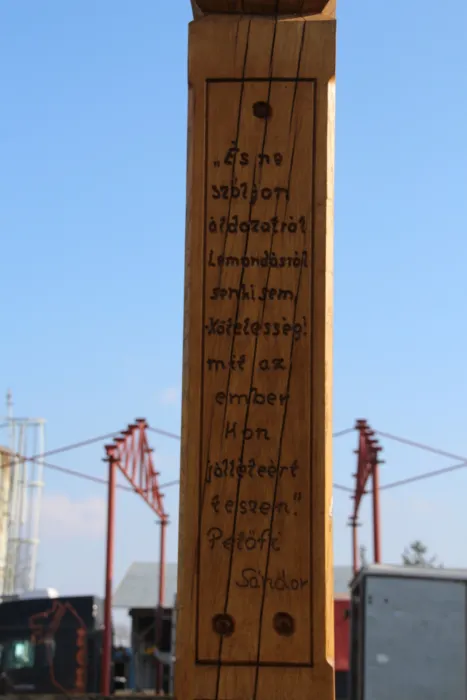 „És ne
szóljon
áldozatról
Lemondásról
senki sem,
Kötelesség!
mit az
ember
Hon
jólléteért
teszen."
Petőfi
Sándor